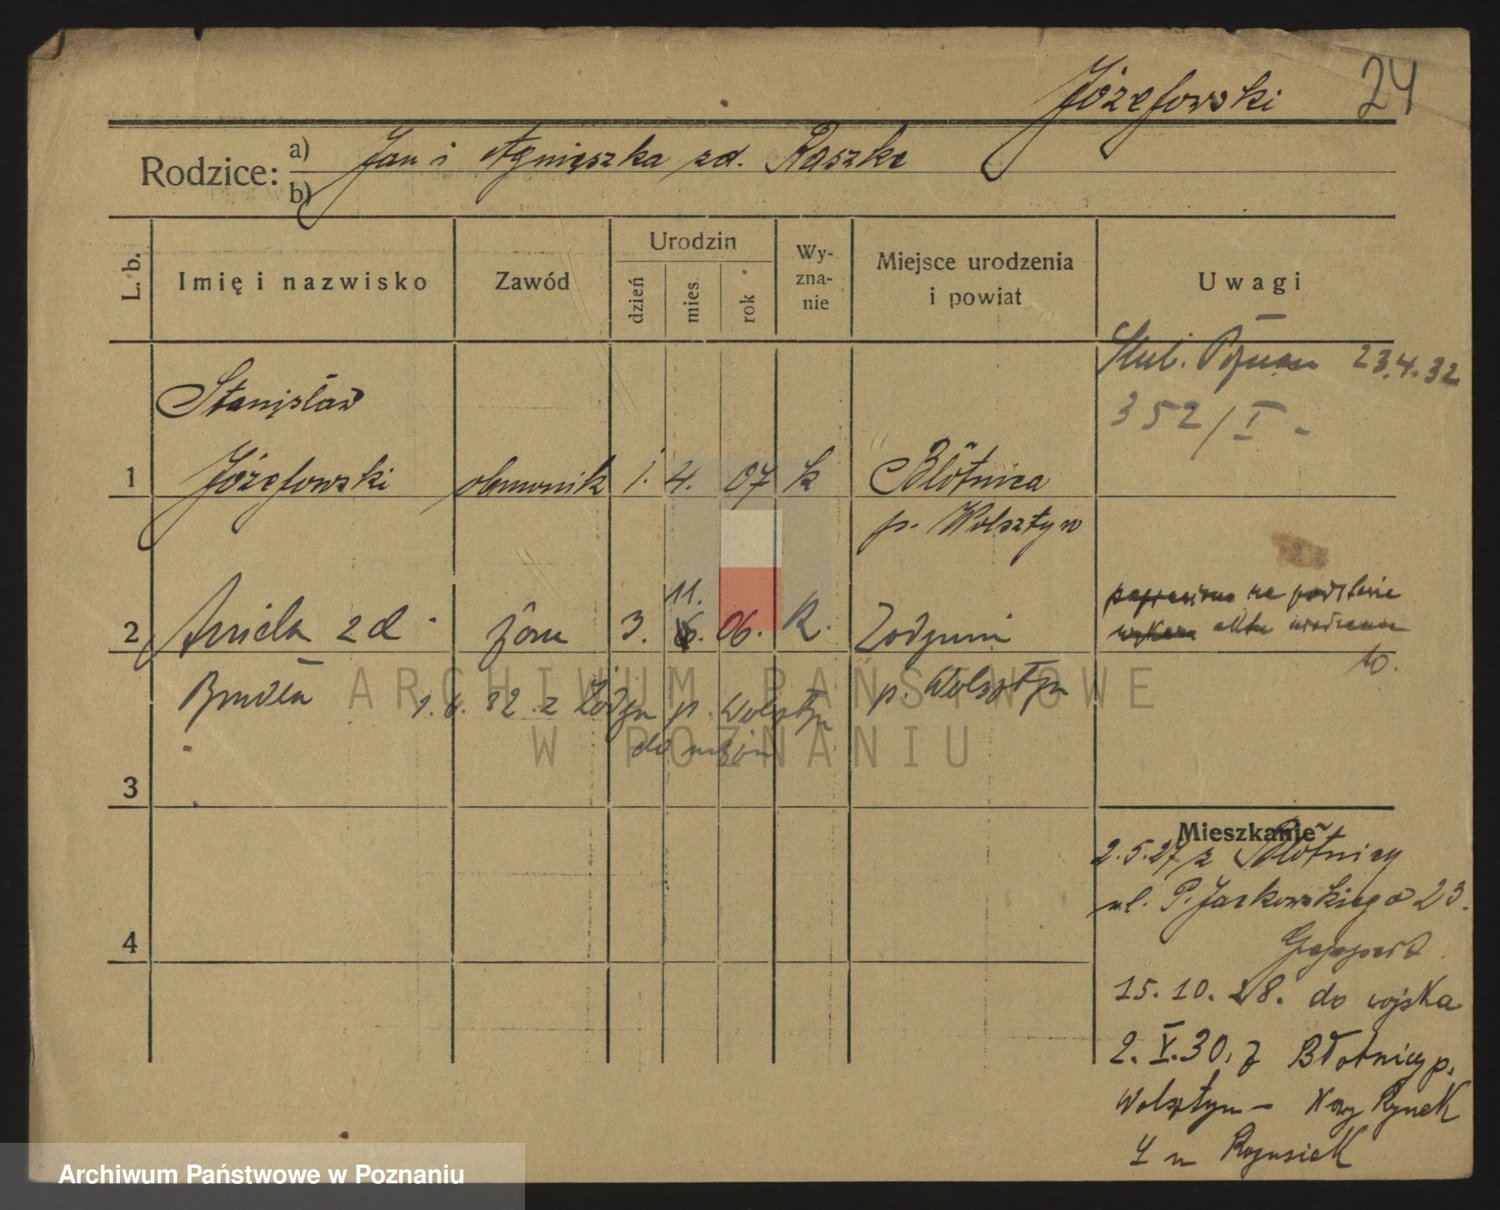 Józefowski 24
Rodzice: a) Jan i Agnieszka zd. Raszke
b)
L. b.
Imię i nazwisko
Zawód
Urodzin
dzień
mies.
rok
Wy-
zna-
nie
Miejsce urodzenia
i powiat
Uwagi
Ślub. Poznań 23.4.32
352/I -
Stanisław
1 Józefowski 1. 4. 07 k Błotnica
p. Wolsztyn
11.
2 Aniela zd. żona 3. 06. k.
p. Wolsztyn
na podstawie
aktu
1.6.32 z p. Wolsztyn
do męża
3
Mieszkanie
2.5.27 z Błotnicy
ul. P. Jackowskiego 23.
4
15.10.28. do wojska
2.V.30. z Błotnicy p.
Wolsztyn - Nowy Rynek
4 u
ARCHIWUM PAŃSTWOWE
W POZNANIU
Archiwum Państwowe w Poznaniu